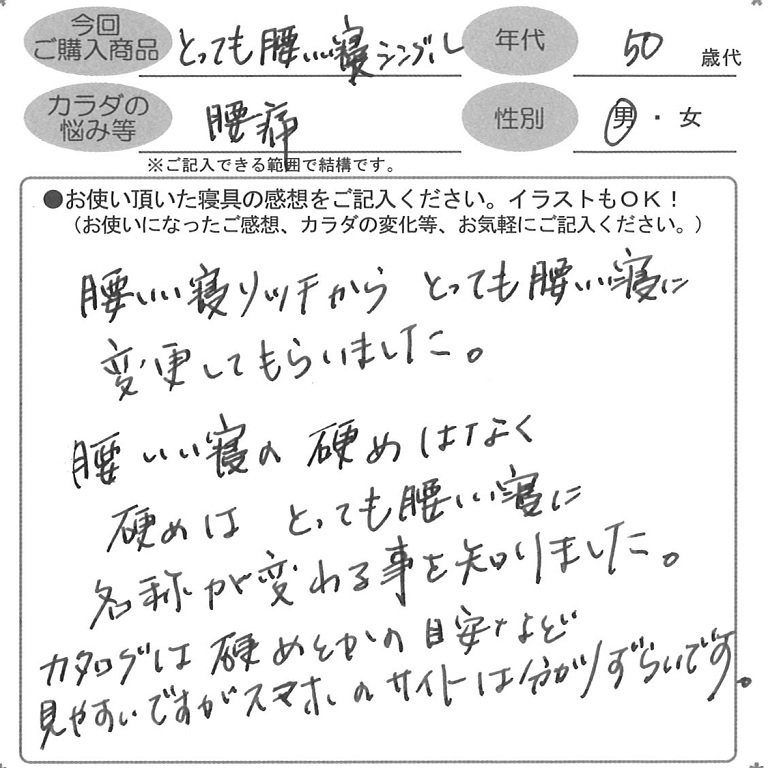 今回
ご購入商品 とっても腰いい寝シングル 年代 50 歳代
カラダの
悩み等 腰痛 性別 男・女
※ご記入できる範囲で結構です。
●お使い頂いた寝具の感想をご記入ください。イラストもOK!
(お使いになったご感想、カラダの変化等、お気軽にご記入ください。)
腰いい寝リッチから とっても腰いい寝に
変更してもらいました。
腰いい寝の硬めはなく
硬めは とっても腰いい寝に
名称が変わる事を知りました。
カタログは硬めとかの目安など
見やすいですがスマホのサイトは分かりずらいです。